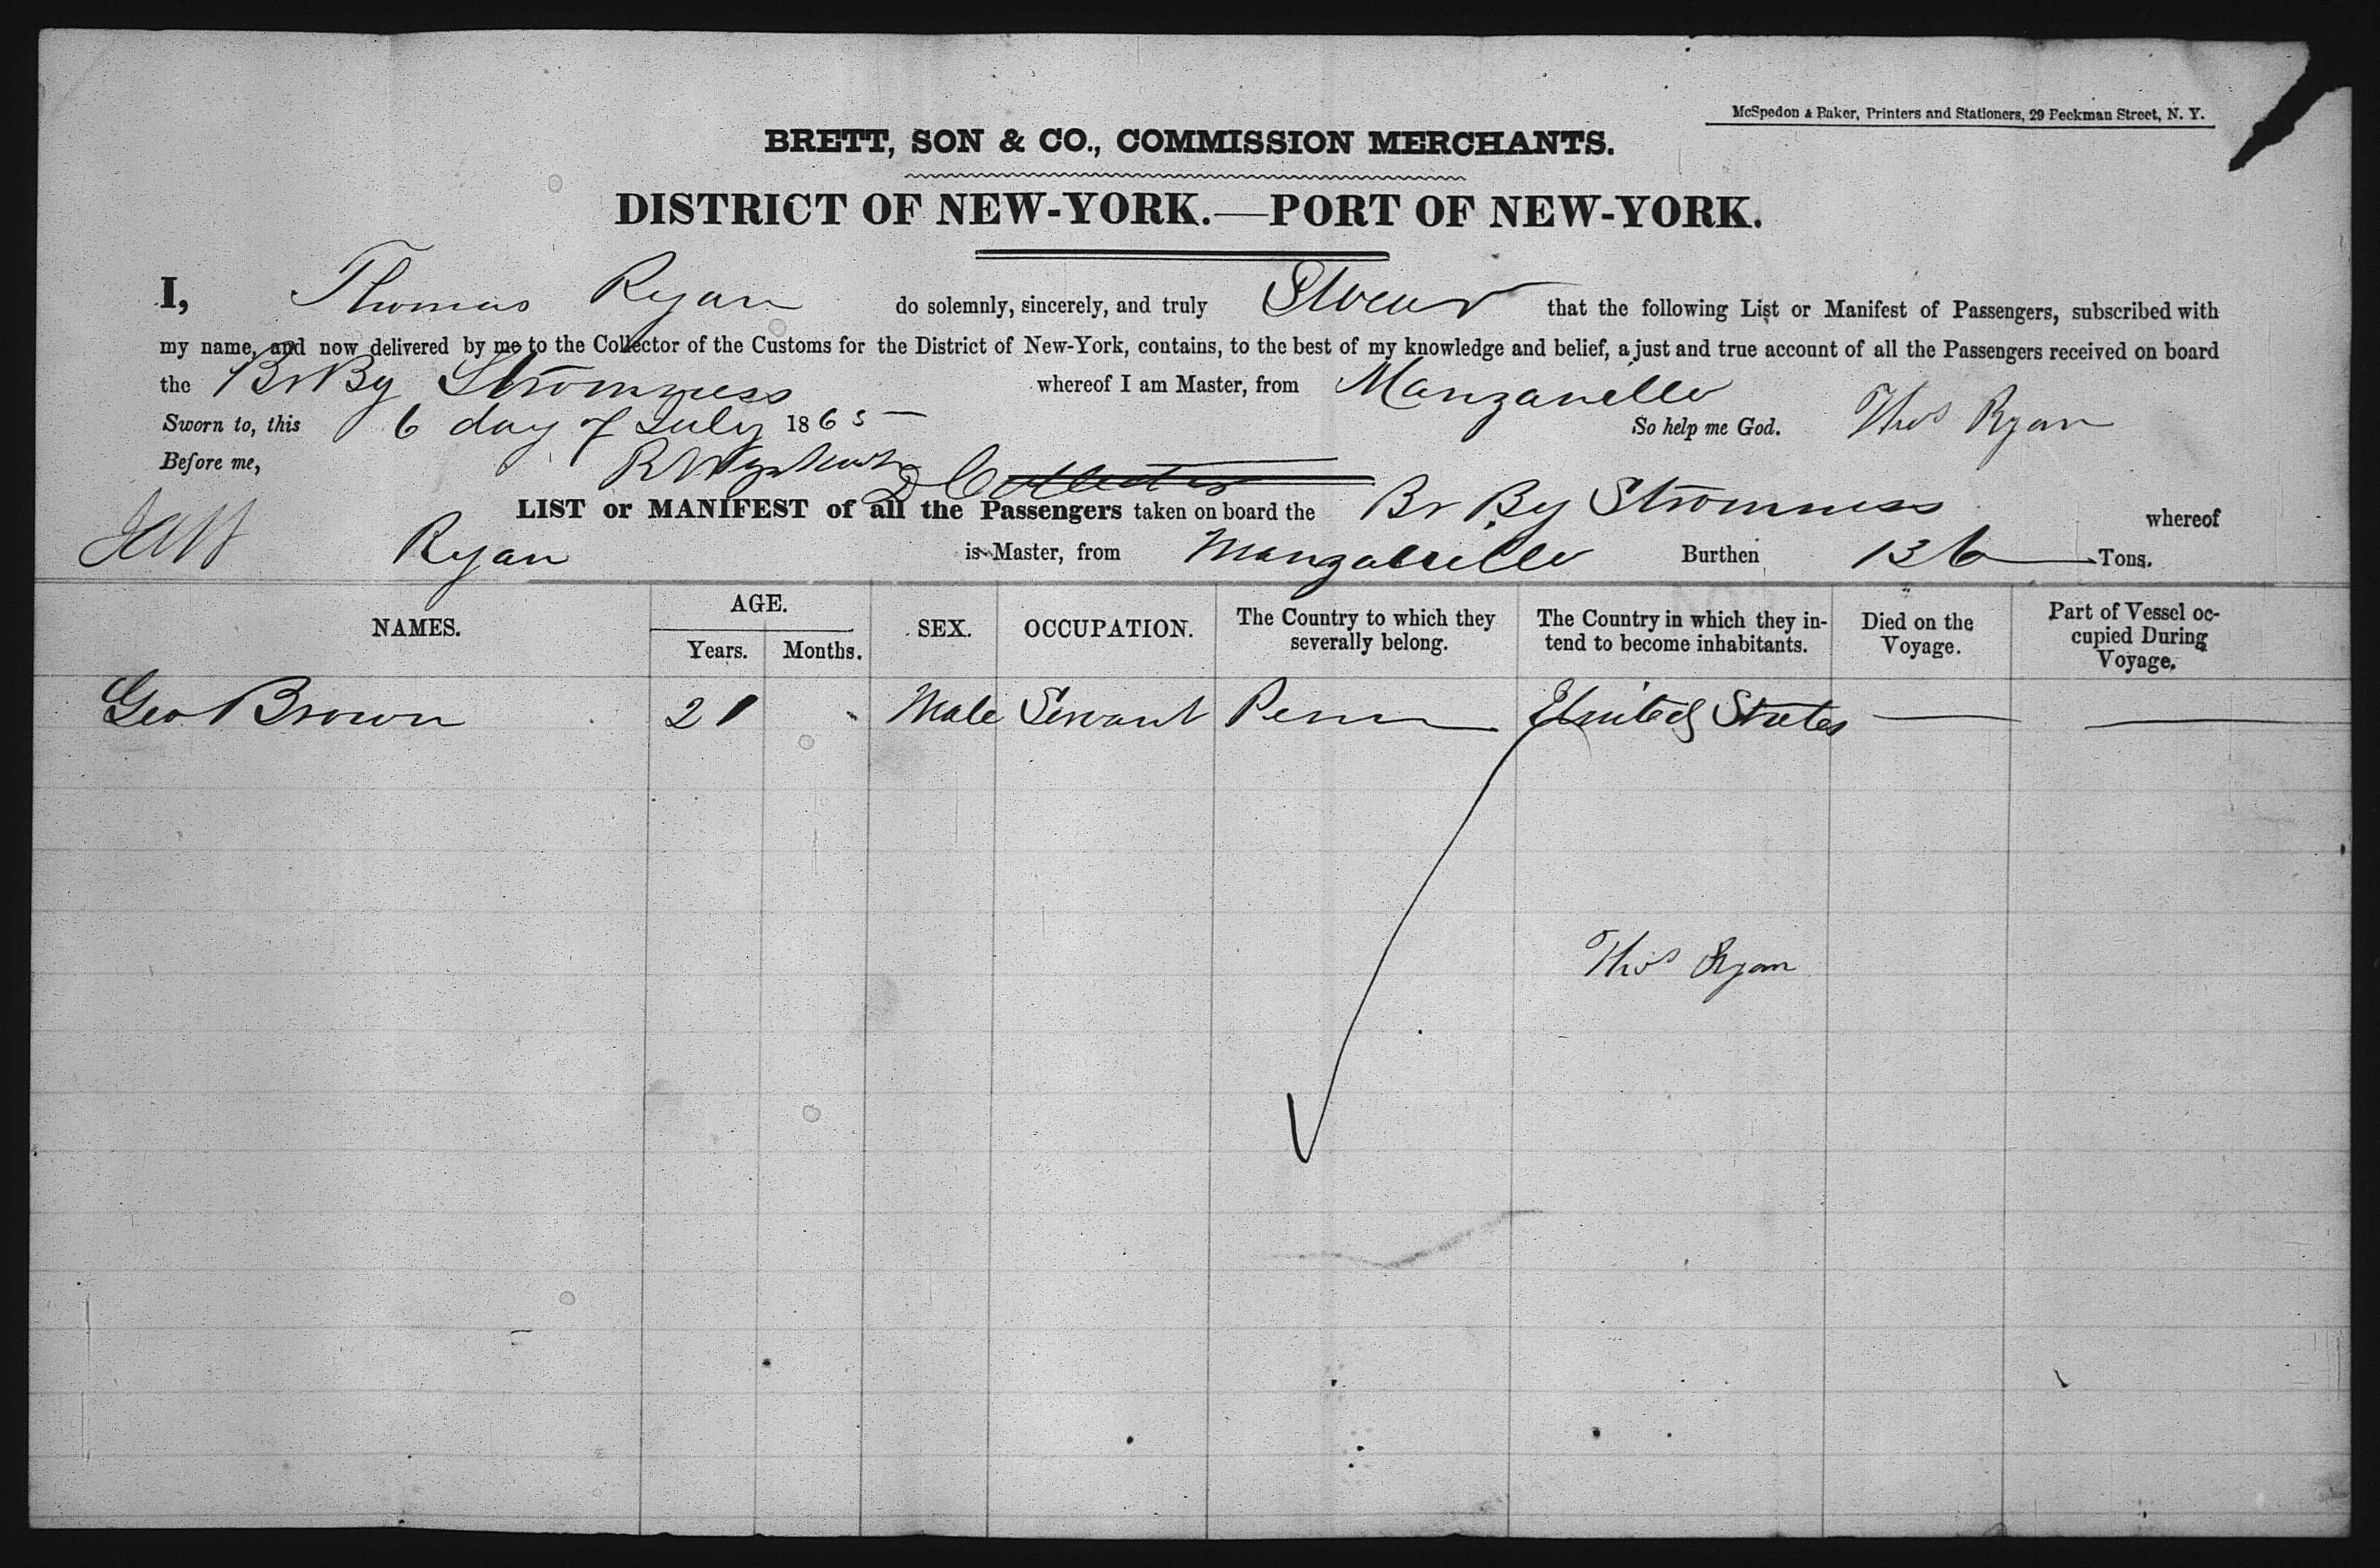 McSpedon & Baker, Printers and Stationers, 29 Beekman Street, N. Y.
BRETT, SON & CO., COMMISSION MERCHANTS.
DISTRICT OF NEW-YORK.—PORT OF NEW-YORK.
I, Thomas Ryan do solemnly, sincerely, and truly Swear that the following List or Manifest of Passengers, subscribed with
my name, and now delivered by me to the Collector of the Customs for the District of New-York, contains, to the best of my knowledge and belief, a just and true account of all the Passengers received on board
the Br Bg Stromness whereof I am Master, from Manzanello
Sworn to, this 6 day of July 1865 So help me God. Thos Ryan
Before me, D Collector
LIST or MANIFEST of all the Passengers taken on board the Br Bg Stromness whereof
Ryan is Master, from Manzanello Burthen 136 Tons.
NAMES. AGE. Years. Months. SEX. OCCUPATION. The Country to which they severally belong. The Country in which they intend to become inhabitants. Died on the Voyage. Part of Vessel occupied During Voyage.
Geo Brown 21 Male Servant Penn United States
Thos Ryan